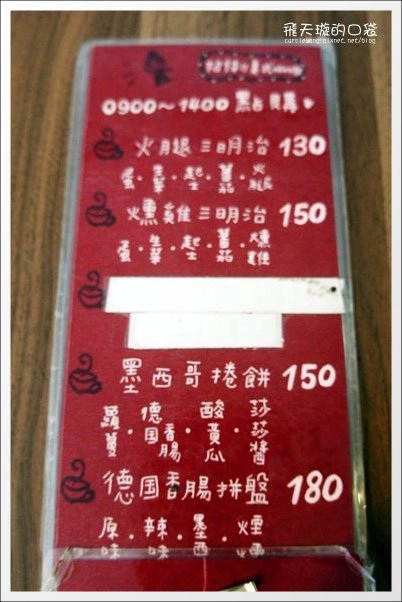 飛天璇的口袋
carrieeang.pixnet.net/blog
0900~1400 點購
火腿三明治 130
蛋·生菜·起士·蕃茄·火腿
燻雞三明治 150
蛋·生菜·起士·蕃茄·燻雞
墨西哥捲餅 150
蘿蔓·德国香腸·酸黃瓜·莎莎醬
德国香腸拼盤 180
原味·辣味·墨西·煙